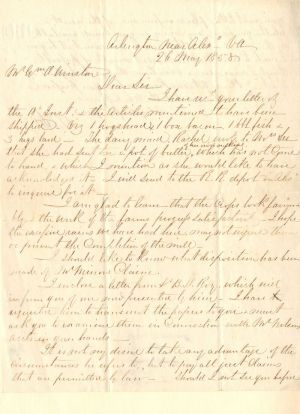 Arlington Near Alexa VA
26 May 1858
Mr Wm A Winston
Dear Sir
I have recd your letter of
the 18 Inst. & the articles mentioned to have been
shipped. Viz 1 hogshead & 1 box bacon 1 bbl fish &
3 bags lard. The day maid Rachel
that she had sent him 1 pot of butter, which has not come
to hand & which I mention as she would like to have
it. I will send to the R. R. depot
to inquire for it.
I am glad to learn that the crops look
& the work of the farms progress I hope
the rains we have had here may not injure them
or prevent the completion of the mill.
I should like to know what disposition has been
made of Mr claim.
I enclose a letter from which will
inform you of one now presented by him. I have
requested him to transmit the papers to you & must
ask you to examine them in connection with Mr
in your hands.
It is not my desire to take any advantage of the
circumstances he refers to, but to pay all just claims
that are permitted by law. Should I not see you before